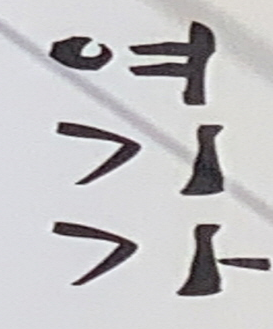 여기가